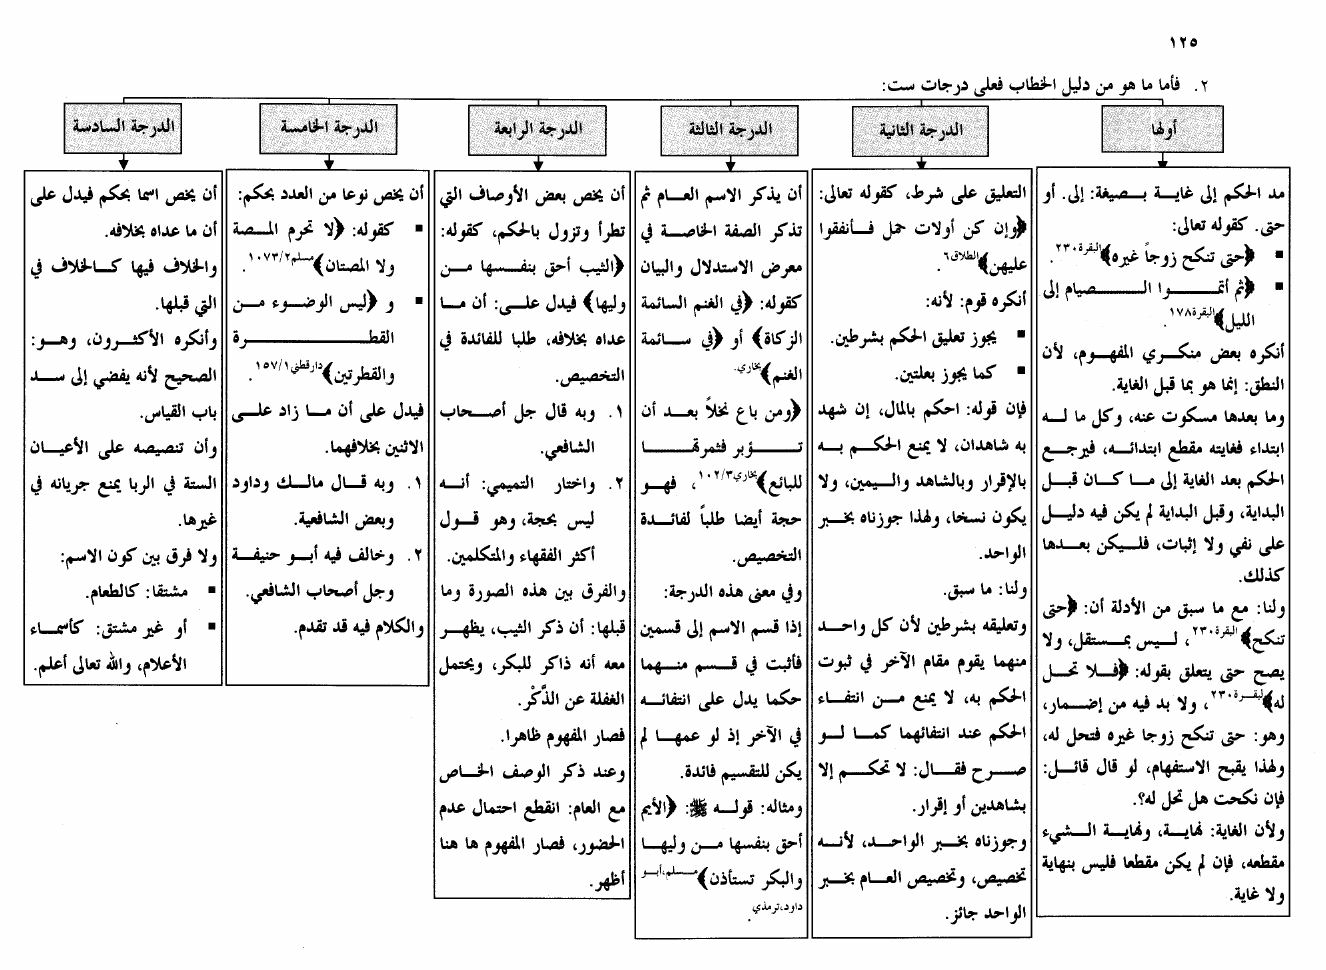 ١٢٥
٢. فأما ما هو من دليل الخطاب فعلى درجات ست:
أولها
مد الحكم إلى غاية بصيغة: إلى. أو
حتى. كقوله تعالى:
▪ ﴿حتى تنكح زوجاً غيره﴾البقرة٢٣٠.
▪ ﴿ثم أتموا الصيام إلى
الليل﴾البقرة١٧٨.
أنكره بعض منكري المفهوم، لأن
النطق: إنما هو بما قبل الغاية.
وما بعدها مسكوت عنه، وكل ما له
ابتداء فغايته مقطع ابتدائه، فيرجع
الحكم بعد الغاية إلى ما كان قبل
البداية، وقبل البداية لم يكن فيه دليل
على نفي ولا إثبات، فليكن بعدها
كذلك.
ولنا: مع ما سبق من الأدلة أن: ﴿حتى
تنكح﴾البقرة٢٣٠، ليس بمستقل، ولا
يصح حتى يتعلق بقوله: ﴿فلا تحل
له﴾البقرة٢٣٠، ولا بد فيه من إضمار،
وهو: حتى تنكح زوجا غيره فتحل له،
ولهذا يقبح الاستفهام، لو قال قائل:
فإن نكحت هل تحل له؟.
ولأن الغاية: نهاية، ونهاية الشيء
مقطعه، فإن لم يكن مقطعا فليس بنهاية
ولا غاية.
الدرجة الثانية
التعليق على شرط، كقوله تعالى:
﴿وإن كن أولات حمل فأنفقوا
عليهن﴾الطلاق٦.
أنكره قوم: لأنه:
▪ يجوز تعليق الحكم بشرطين.
▪ كما يجوز بعلتين.
فإن قوله: احكم بالمال، إن شهد
به شاهدان، لا يمنع الحكم به
بالإقرار وبالشاهد واليمين، ولا
يكون نسخا، ولهذا جوزناه بخبر
الواحد.
ولنا: ما سبق.
وتعليقه بشرطين لأن كل واحد
منهما يقوم مقام الآخر في ثبوت
الحكم به، لا يمنع من انتفاء
الحكم عند انتفائهما كما لو
صرح فقال: لا تحكم إلا
بشاهدين أو إقرار.
وجوزناه بخبر الواحد، لأنه
تخصيص، وتخصيص العام بخبر
الواحد جائز.
الدرجة الثالثة
أن يذكر الاسم العام ثم
تذكر الصفة الخاصة في
معرض الاستدلال والبيان
كقوله: ﴿في الغنم السائمة
الزكاة﴾ أو ﴿في سائمة
الغنم﴾بخاري.
﴿ومن باع نخلاً بعد أن
تؤبر فثمرتها
للبائع﴾بخاري١٠٢/٣، فهو
حجة أيضا طلباً لفائدة
التخصيص.
وفي معنى هذه الدرجة:
إذا قسم الاسم إلى قسمين
فأثبت في قسم منهما
حكما يدل على انتفائه
في الآخر إذ لو عمهما لم
يكن للتقسيم فائدة.
ومثاله: قوله ﷺ: ﴿الأيم
أحق بنفسها من وليها
والبكر تستأذن﴾مسلم،أبو
داود،ترمذي.
الدرجة الرابعة
أن يخص بعض الأوصاف التي
تطرأ وتزول بالحكم، كقوله:
﴿الثيب أحق بنفسها من
وليها﴾ فيدل على: أن ما
عداه بخلافه، طلبا للفائدة في
التخصيص.
١. وبه قال جل أصحاب
الشافعي.
٢. واختار التميمي: أنه
ليس بحجة، وهو قول
أكثر الفقهاء والمتكلمين.
والفرق بين هذه الصورة وما
قبلها: أن ذكر الثيب، يظهر
معه أنه ذاكر للبكر، ويحتمل
الغفلة عن الذِّكْر.
فصار المفهوم ظاهرا.
وعند ذكر الوصف الخاص
مع العام: انقطع احتمال عدم
الحضور، فصار المفهوم ها هنا
أظهر.
الدرجة الخامسة
أن يخص نوعا من العدد بحكم:
▪ كقوله: ﴿لا تحرم المصة
ولا المصتان﴾مسلم١٠٧٣/٢.
▪ و ﴿ليس الوضوء من
القطرة
والقطرتين﴾دارقطني١٥٧/١.
فيدل على أن ما زاد على
الاثنين بخلافهما.
١. وبه قال مالك وداود
وبعض الشافعية.
٢. وخالف فيه أبو حنيفة
وجل أصحاب الشافعي.
والكلام فيه قد تقدم.
الدرجة السادسة
أن يخص اسما بحكم فيدل على
أن ما عداه بخلافه.
والخلاف فيها كالخلاف في
التي قبلها.
وأنكره الأكثرون، وهو:
الصحيح لأنه يفضي إلى سد
باب القياس.
وأن تنصيصه على الأعيان
الستة في الربا يمنع جريانه في
غيرها.
ولا فرق بين كون الاسم:
▪ مشتقا: كالطعام.
▪ أو غير مشتق: كأسماء
الأعلام، والله تعالى أعلم.